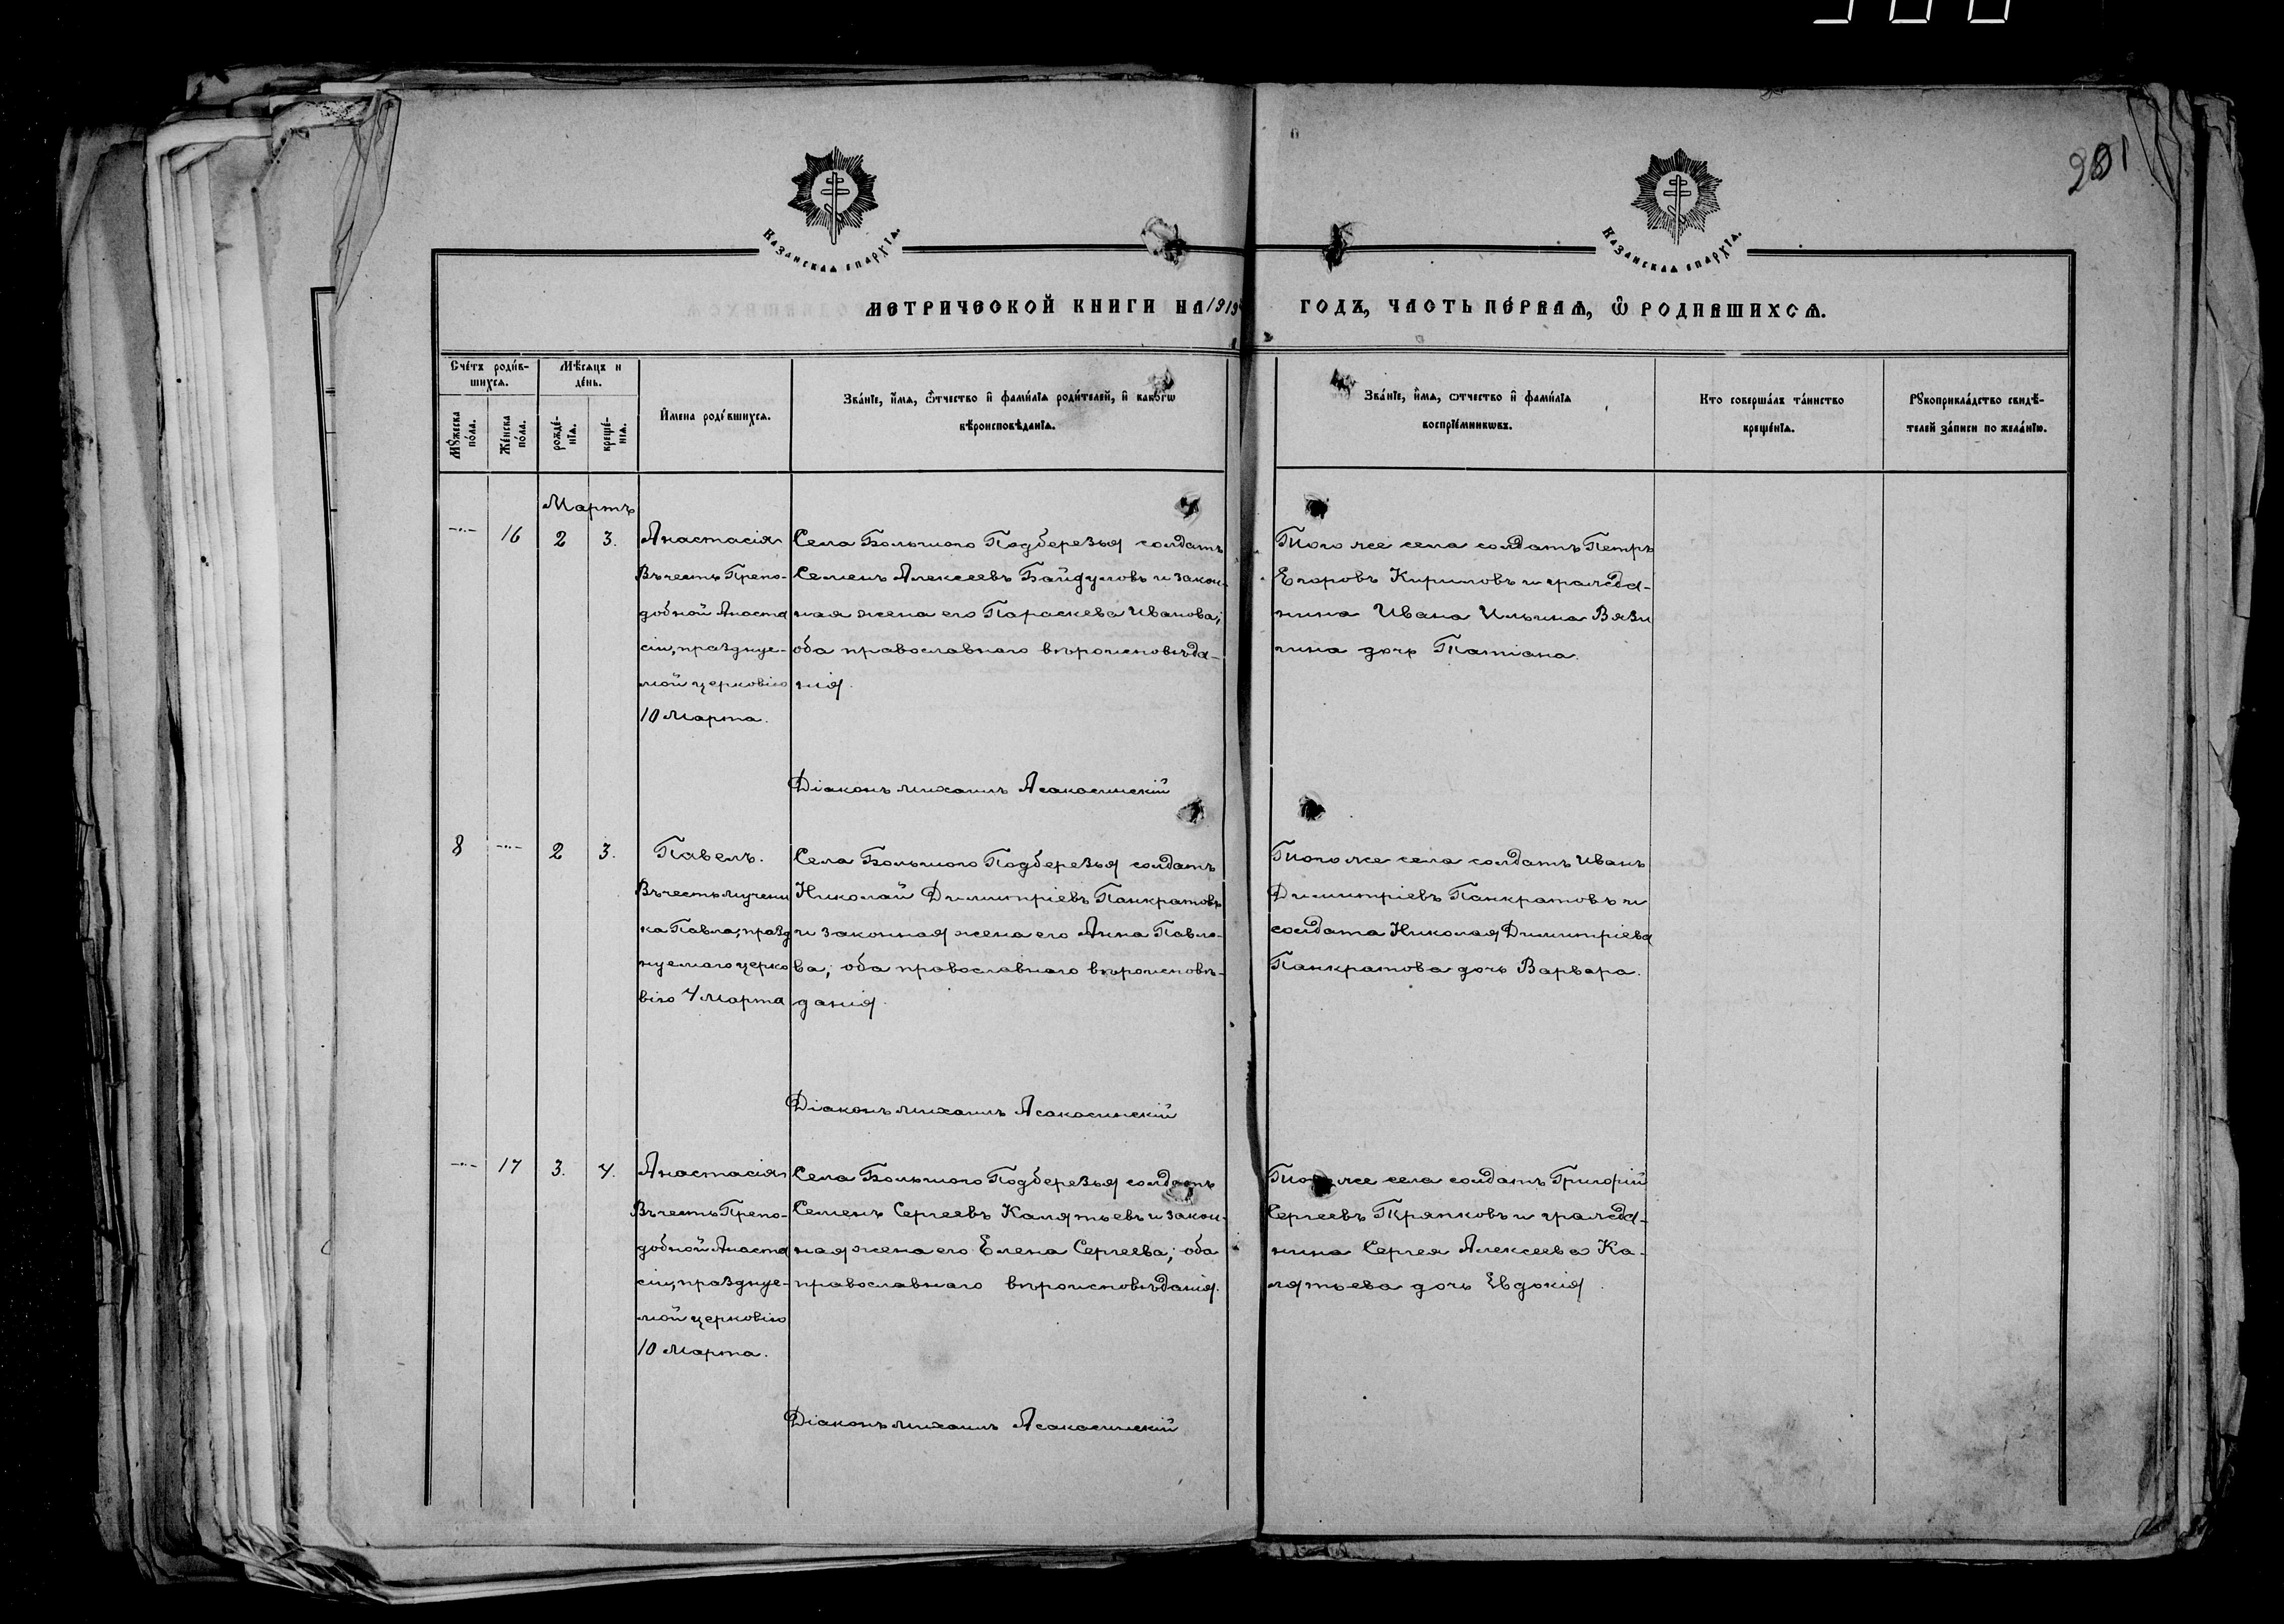 201
Казанская епархїѧ.
Казанская епархїѧ.
МЕТРИЧЕСКОЙ КНИГИ НА 1919 ГОДЪ, ЧАСТЬ ПЕ́РВАѦ, Ѿ РОДИВШИХСѦ.
Сче́тъ роди́в-
шихсѧ.
Мѣ́сѧцъ и
де́нь.
Мꙋ́жеска
по́ла.
Же́нска
по́ла.
рожде́-
нїѧ.
креще́-
нїѧ.
И́мена роди́вшихсѧ.
Зва́нїе, и́мѧ, ѻтчество и фами́лїѧ роди́телей, и како́гѡ
вѣроисповѣ́данїѧ.
Зва́нїе, и́мѧ, ѻтчество и фами́лїѧ
воспрїе́мникѡвъ.
Кто соверша́лъ та́инство
креще́нїѧ.
Рꙋкоприкла́дство свидѣ́-
телей за́писи по жела́нїю.
Мартъ
16 2 3.
Анастасія
Въ честь Препо-
добной Анаста
сіи, праздну­е-
мой церковію
10 Марта.
Села Большого Подберезья солдатъ
Семенъ Алексеевъ Байдуловъ и закон-
ная жена его Параскева Иванова;
оба православнаго вѣроисповѣда-
нія.
Того же села солдатъ Петръ
Егоровъ Кириловъ и гражда-
нина Ивана Ильина Вязи
гина дочь Татіана.
Діаконъ Михаилъ Асакасинскій
8 2 3.
Павелъ.
Въ честь мучени
ка Павла, празд
нуемаго церко
вію 4 Марта
Села Большого Подберезья солдатъ
Николай Димитріевъ Панкратовъ
и законная жена его Анна Павло-
ва; оба православнаго вѣроисповѣ-
данія.
Того же села солдатъ Иванъ
Димитріевъ Панкратовъ и
солдата Николая Димитріева
Панкратова дочь Варвара.
Діаконъ Михаилъ Асакасинскій
17 3. 4.
Анастасія
Въ честь Препо-
добной Анаста
сіи, праздну­е-
мой церковію
10 Марта.
Села Большого Подберезья солдатъ
Семенъ Сергеевъ Калятьевъ и закон-
ная жена его Елена Сергеева; оба
православнаго вѣроисповѣданія.
Того же села солдатъ Григорій
Сергеевъ Тряпковъ и гражда-
нина Сергея Алексеева Ка-
лятьева дочь Евдокія.
Діаконъ Михаилъ Асакасинскій